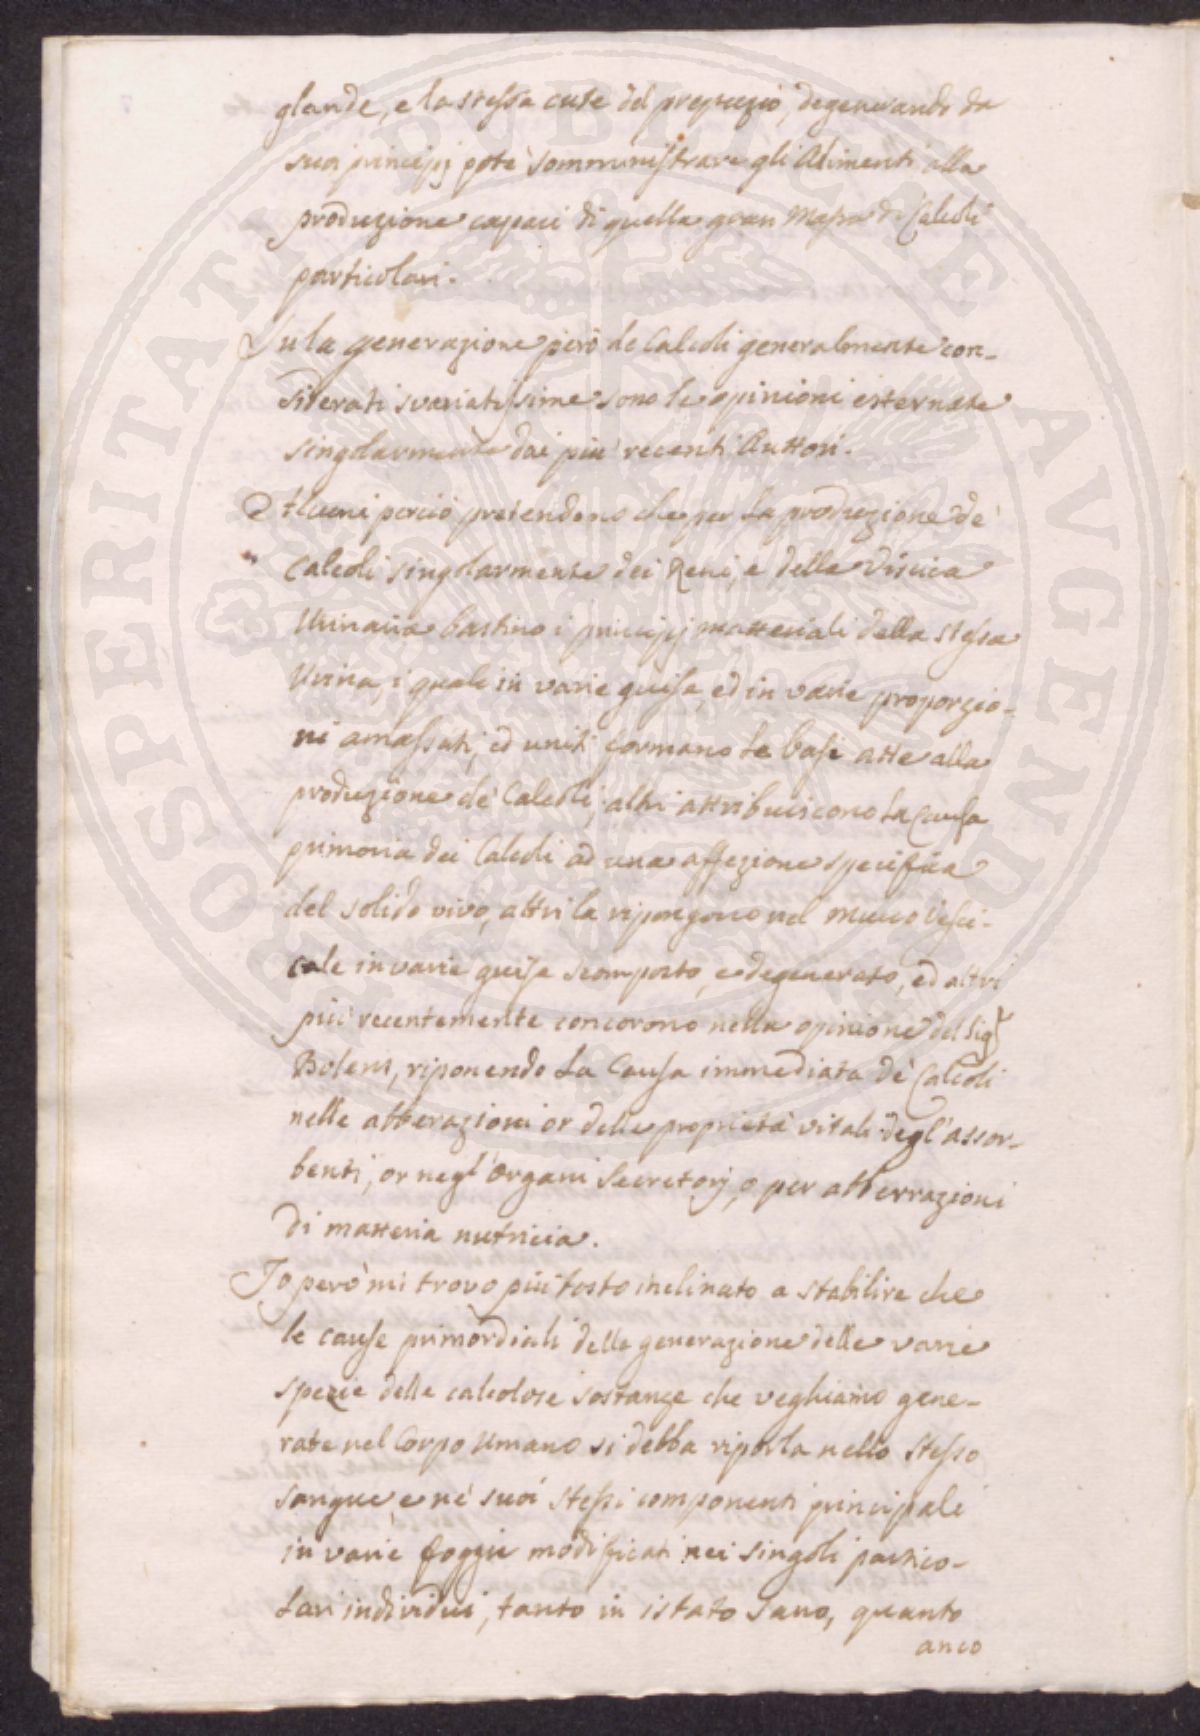 glande, e la stessa cute del prepuzio, degenerando da
suoi principj potè somministrare gli Alimenti alla
produzione capaci di quella gran Massa di Calcoli
particolari.
Su la generazione però de Calcoli generalmente con-
siderati svariatissime sono le opinioni esternate
singolarmente dai più recenti Auttori.
Alcuni perciò pretendono che per la produzione de'
Calcoli singolarmente dei Reni, e della Viscica
Urinaria bastino i principj matteriali della stessa
Urina, i quali in varie guise, ed in varie proporzio-
ni amassati, ed uniti formano le basi atte alla
produzione de' Calcoli; altri attribuiscono la Causa
primoria dei Calcoli ad una affezione specifica
del solido vivo, altri la ripongono nel Mucco Vesci-
cale in varie guise scomposto, e degenerato, ed altri
più recentemente concorono nella opinione del Sigr
Bolens, riponendo la Causa immediata de' Calcoli
nelle abberazioni or delle proprietà vitali degl'assor-
benti, or negl'Organi Secretorj, o per abberrazioni
di matteria nutricia.
Io però mi trovo più tosto inclinato a stabilire che
le cause primordiali delle generazione delle varie
spezie delle calcolose sostanze che veghiamo gene-
rate nel Corpo Umano si debba riporla nello stesso
sangue e ne' suoi stessi componenti principali
in varie foggie modificati nei singoli partico-
lari individui, tanto in istato sano, quanto
anco
SOSPERITATI PUBLICAE AVGENDAE